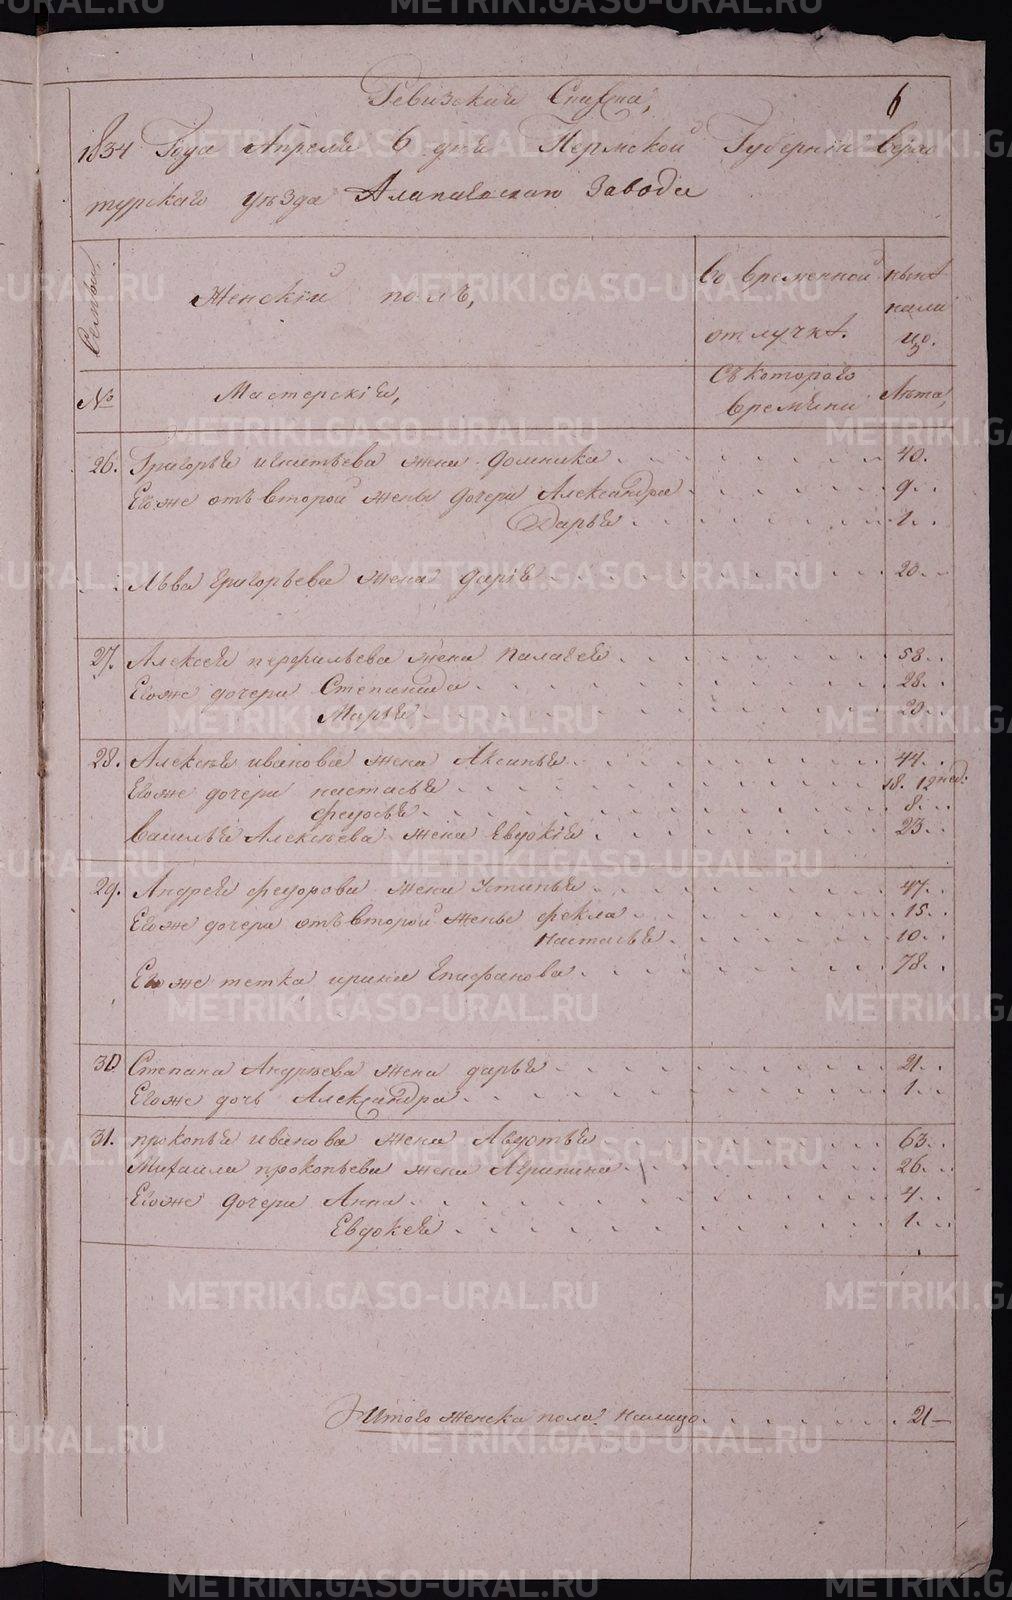 Ревизская Сказка,
6
1834 Года Апреля 6 дня Пермской Губернии Верхо
турского уезда Алапаевского завода
Семьи,
Женский полъ,
Во временной
отлучкѣ.
нынѣ
нали
цо.
№
Мастерскiя,
Съ которого
времѣни
Лѣта,
26. Григорья игнатьева жена домника 40.
Егоже отъ второй жены дочери Александра 9.
Дарья 1.
Льва Григорьева жена дарiя 20
27. Алексея перфильева жена Палагея 58.
Егоже дочери Степанида 28.
Марья 20.
28. Алексѣя иванова жена Аксинья 44.
Егоже дочери настасья 18. 12 нед.
федосья 8.
Василья Алексѣева жена Евдокiя 23.
29. Андрея федорова жена Устинья 47.
Егоже дочери отъ второй жены фекла 15.
Настасья 10.
Егоже тетка ирина Епифанова 78.
30 Степана Андреева жена дарья 21.
Егоже дочь Александра 1.
31. прокопья иванова жена Авдотья 63.
Михаила прокопьева жена Агрипина 26.
Егоже дочери Анна 4.
Евдокея 1.
Итого женска пола налицо 21
METRIKI.GASO-URAL.RU